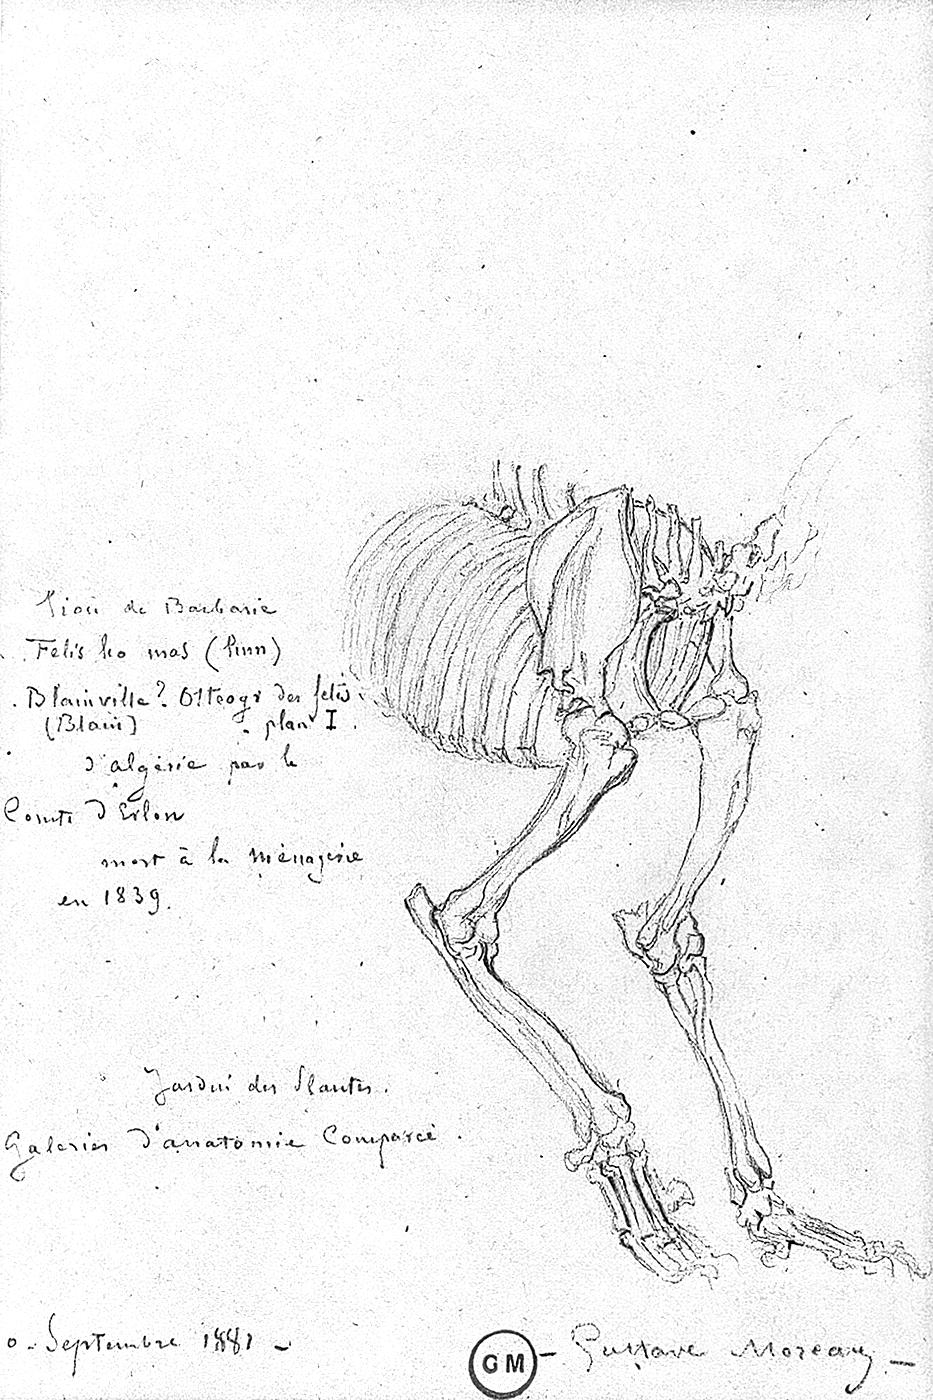 Lion de Barbarie
Felis leo mas (Linn)
Blainville? Osteogr des felis
(Blain) plan I.
d'algérie par le
Comte d'Erlon
mort à la ménagerie
en 1839.
Jardin des Plantes.
Galeries d'anatomie Comparée.
Septembre 1881 -
GM
- Gustave Moreau -